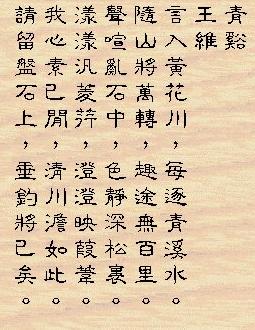 青谿
王維
言入黃花川，每逐青溪水。
隨山將萬轉，趣途無百里。
聲喧亂石中，色靜深松裏。
漾漾汎菱荇，澄澄映葭葦。
我心素已閒，清川澹如此。
請留盤石上，垂釣將已矣。